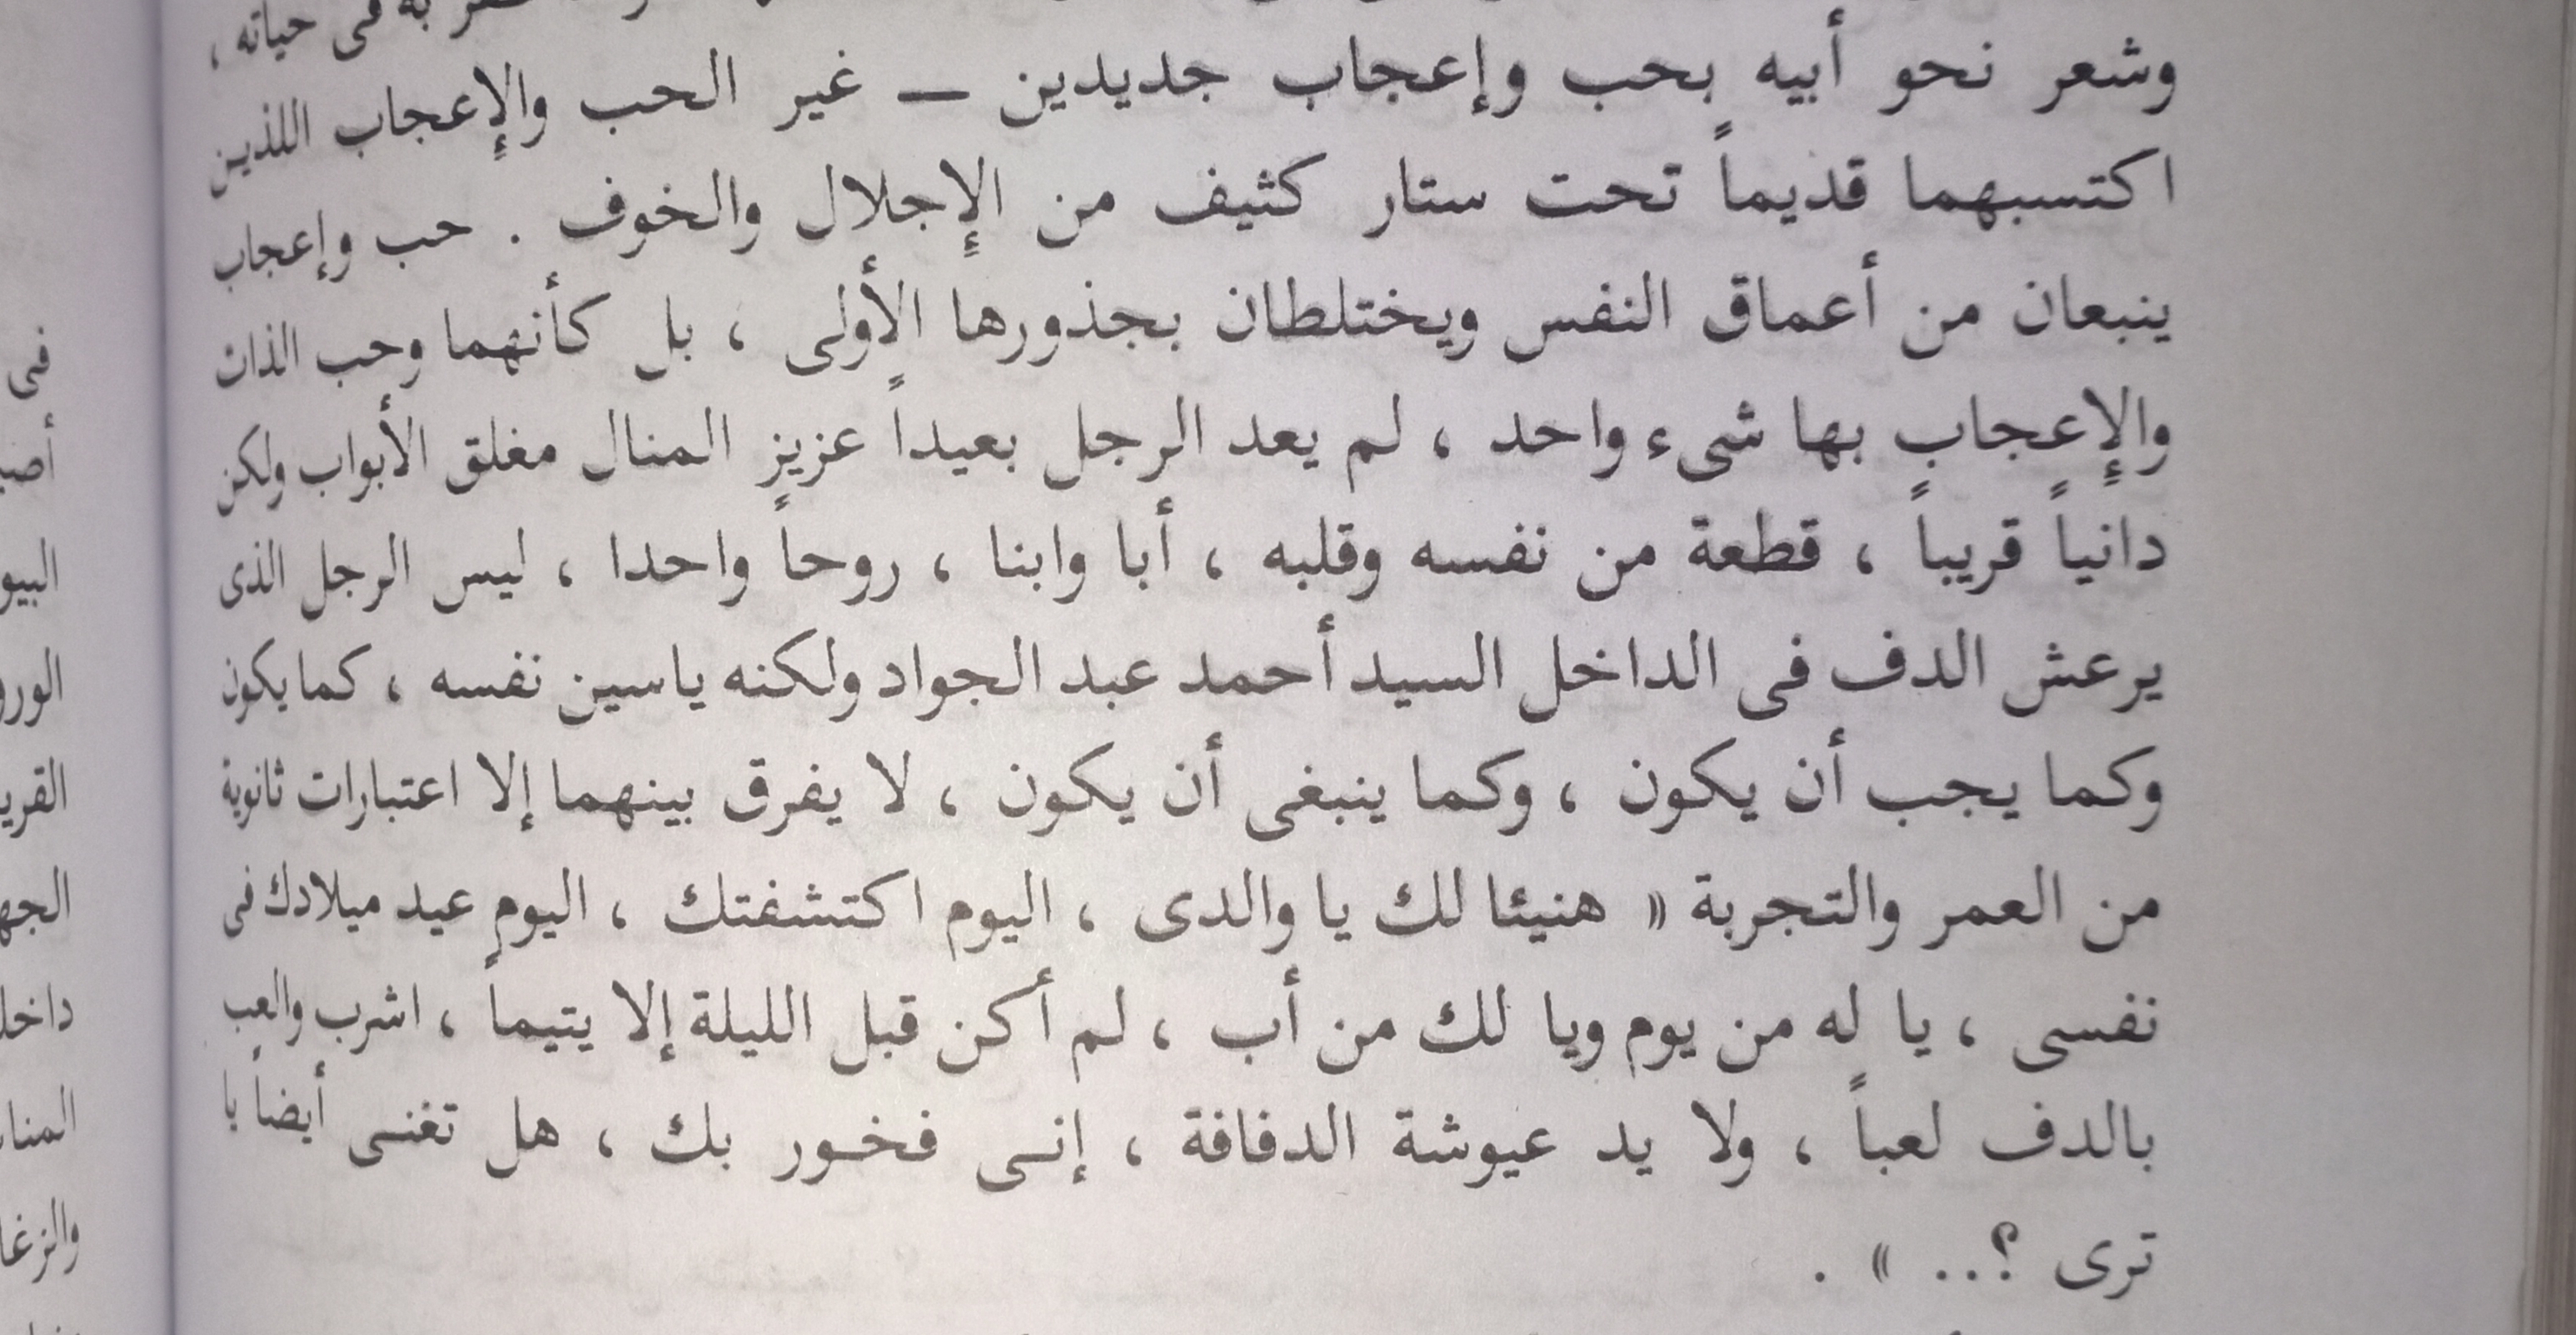 به فى حياته ،
وشعر نحو أبيه بحب وإعجاب جديدين — غير الحب والإعجاب اللذين
اكتسبهما قديماً تحت ستار كثيف من الإجلال والخوف . حب وإعجاب
ينبعان من أعماق النفس ويختلطان بجذورها الأولى ، بل كأنهما وحب الذات
والإعجاب بها شىء واحد ، لم يعد الرجل بعيداً عزيز المنال مغلق الأبواب ولكن
دانياً قريباً ، قطعة من نفسه وقلبه ، أبا وابنا ، روحاً واحدا ، ليس الرجل الذى
يرعش الدف فى الداخل السيد أحمد عبد الجواد ولكنه ياسين نفسه ، كما يكون
وكما يجب أن يكون ، وكما ينبغى أن يكون ، لا يفرق بينهما إلا اعتبارات ثانوية
من العمر والتجربة « هنيئا لك يا والدى ، اليوم اكتشفتك ، اليوم عيد ميلادك فى
نفسى ، يا له من يوم ويا لك من أب ، لم أكن قبل الليلة إلا يتيماً ، اشرب والعب
بالدف لعباً ، ولا يد عيوشة الدفافة ، إنى فخور بك ، هل تغنى أيضاً يا
ترى ؟.. » .
فى